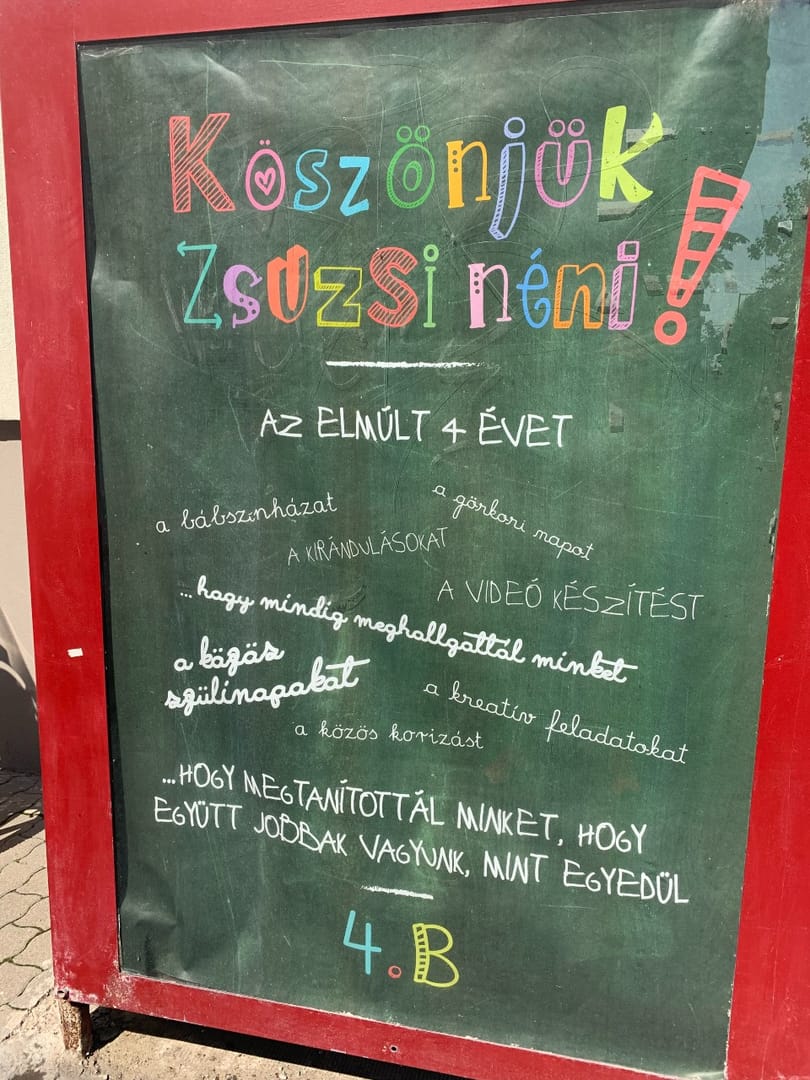 Köszönjük
Zsuzsi néni!
AZ ELMÚLT 4 ÉVET
a bábszínházat
a görkori napot
A KIRÁNDULÁSOKAT
A VIDEÓ KÉSZÍTÉST
...hogy mindig meghallgattál minket
a közös
szülinapokat
a kreatív feladatokat
a közös korizást
...HOGY MEGTANÍTOTTÁL MINKET, HOGY
EGYÜTT JOBBAK VAGYUNK, MINT EGYEDÜL
4.B